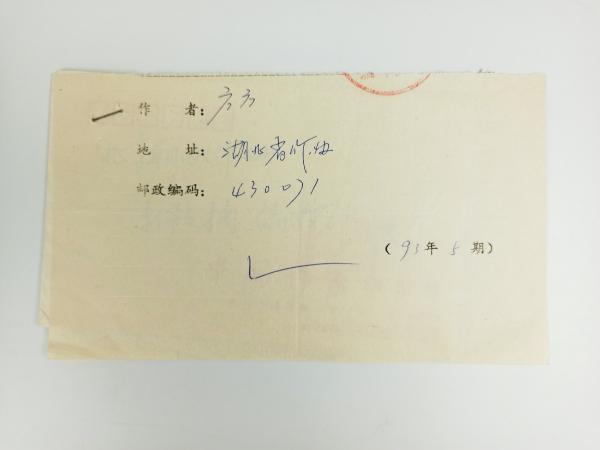 作 者：方方
地 址：湖北省作协
邮政编码：430071
（93年5期）